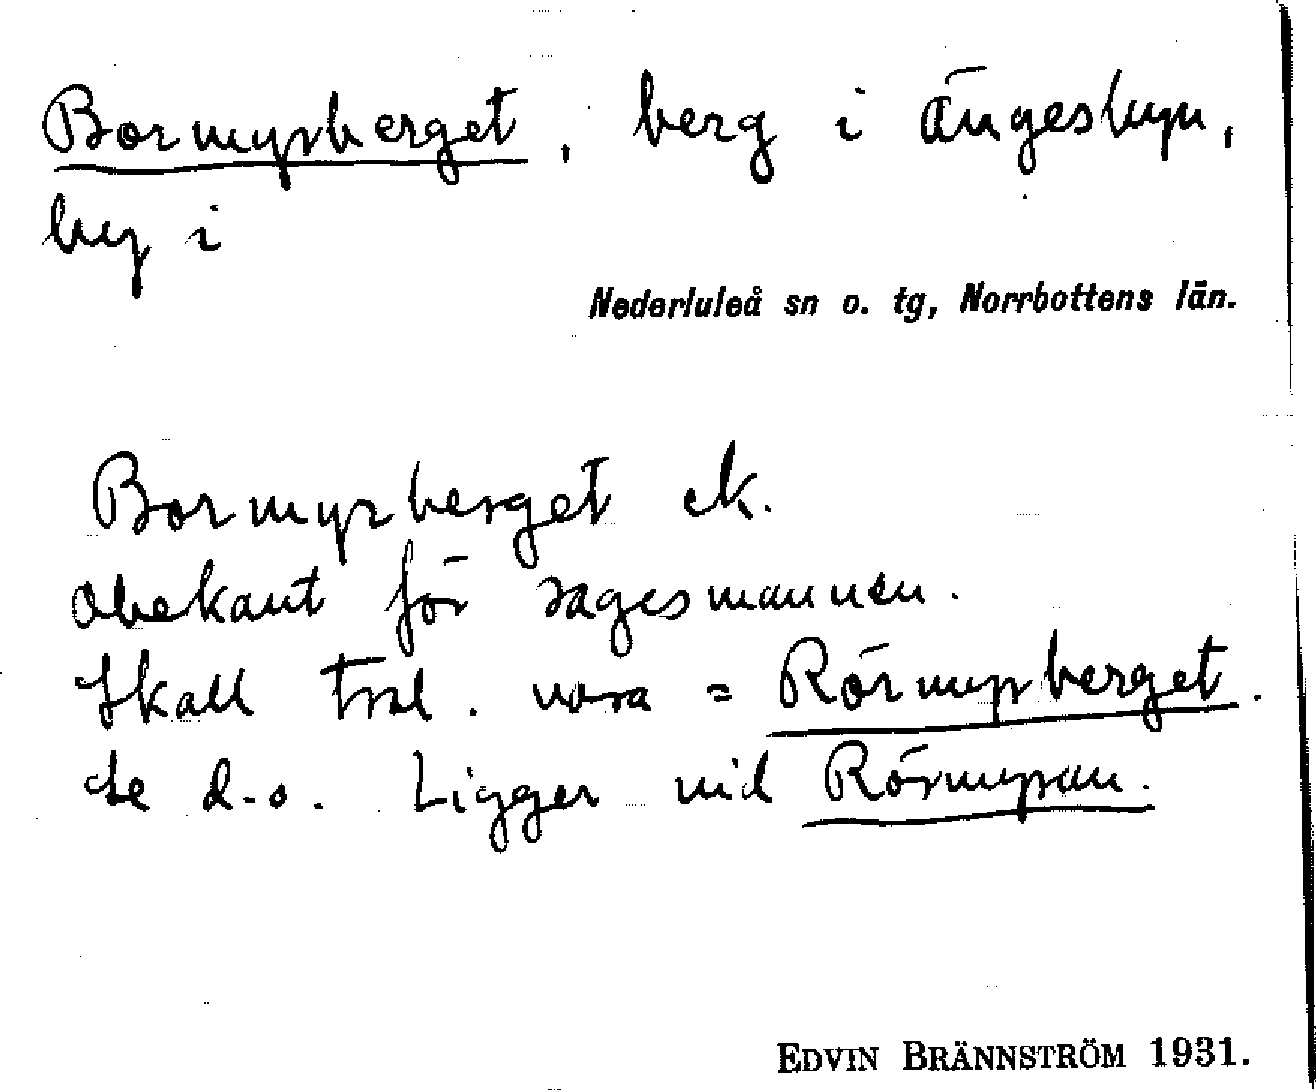 Bormyrberget, berg i Ängesbyn,
by i
Nederluleå sn o. tg, Norrbottens län.
Bormyrberget ek.
obekant för sagesmannen.
Skall trol. vara = Rörmyrberget.
Se d.o. Ligger vid Rörmyran.
EDVIN BRÄNNSTRÖM 1931.